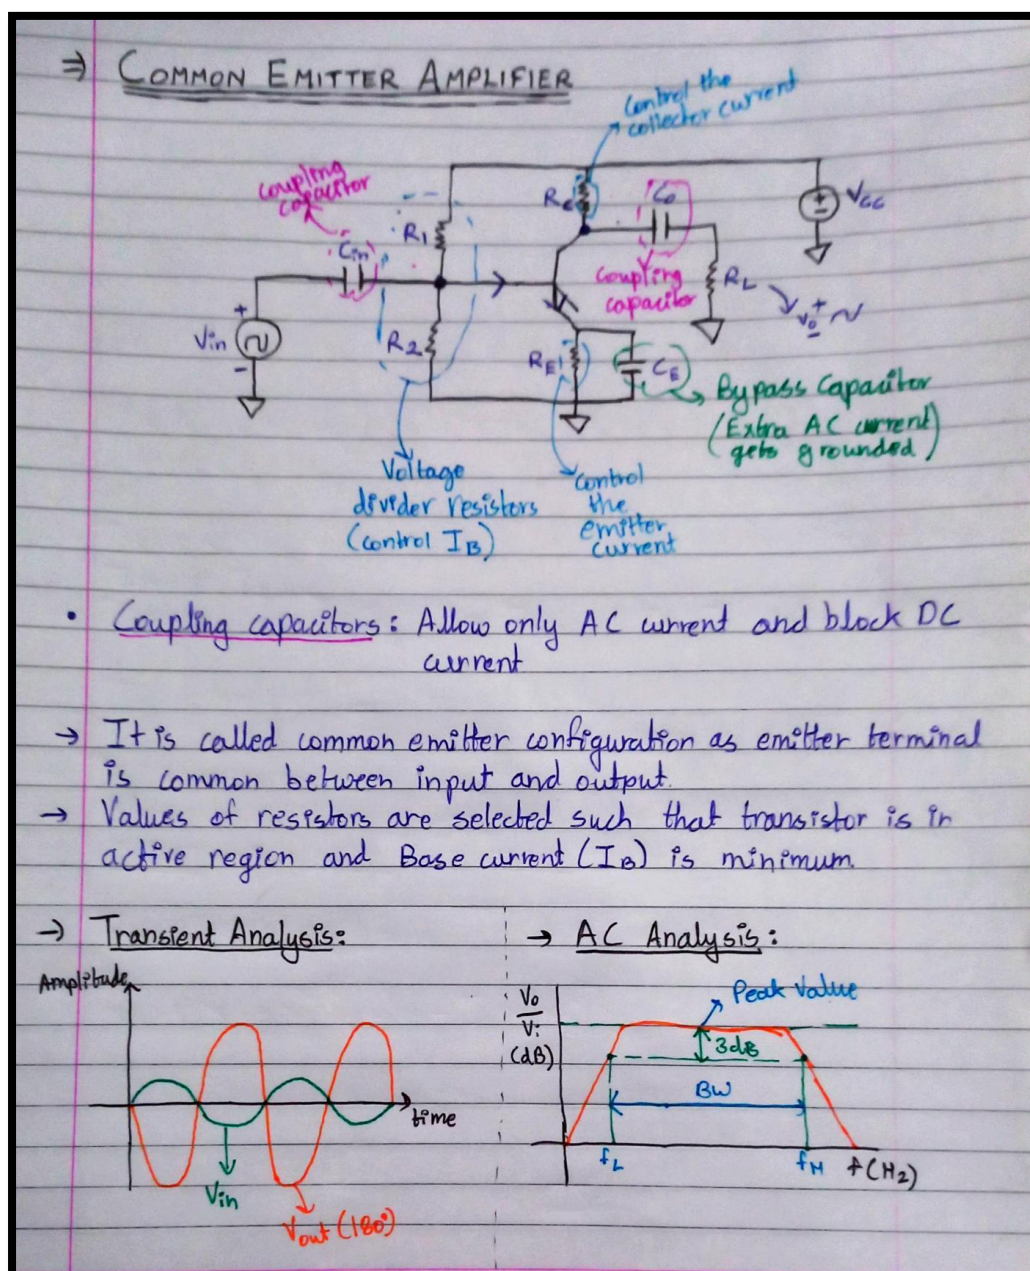 ⇒ COMMON EMITTER AMPLIFIER
Control the
collector current
coupling
capacitor
Cin
R1
RC
Co
VCC
+
-
Coupling
capacitor
RL
+
Vo
-
Vin
+
-
R2
RE
CE
Bypass Capacitor
(Extra AC current
gets grounded)
Voltage
divider resistors
(control IB)
Control
the
emitter
current
• Coupling capacitors: Allow only AC current and block DC
current
→ It is called common emitter configuration as emitter terminal
is common between input and output.
→ Values of resistors are selected such that transistor is in
active region and Base current (IB) is minimum.
→ Transient Analysis:
Amplitude
time
Vin
Vout (180°)
→ AC Analysis:
Vo
Vi
(dB)
Peak Value
3dB
BW
fL
fH
f(Hz)